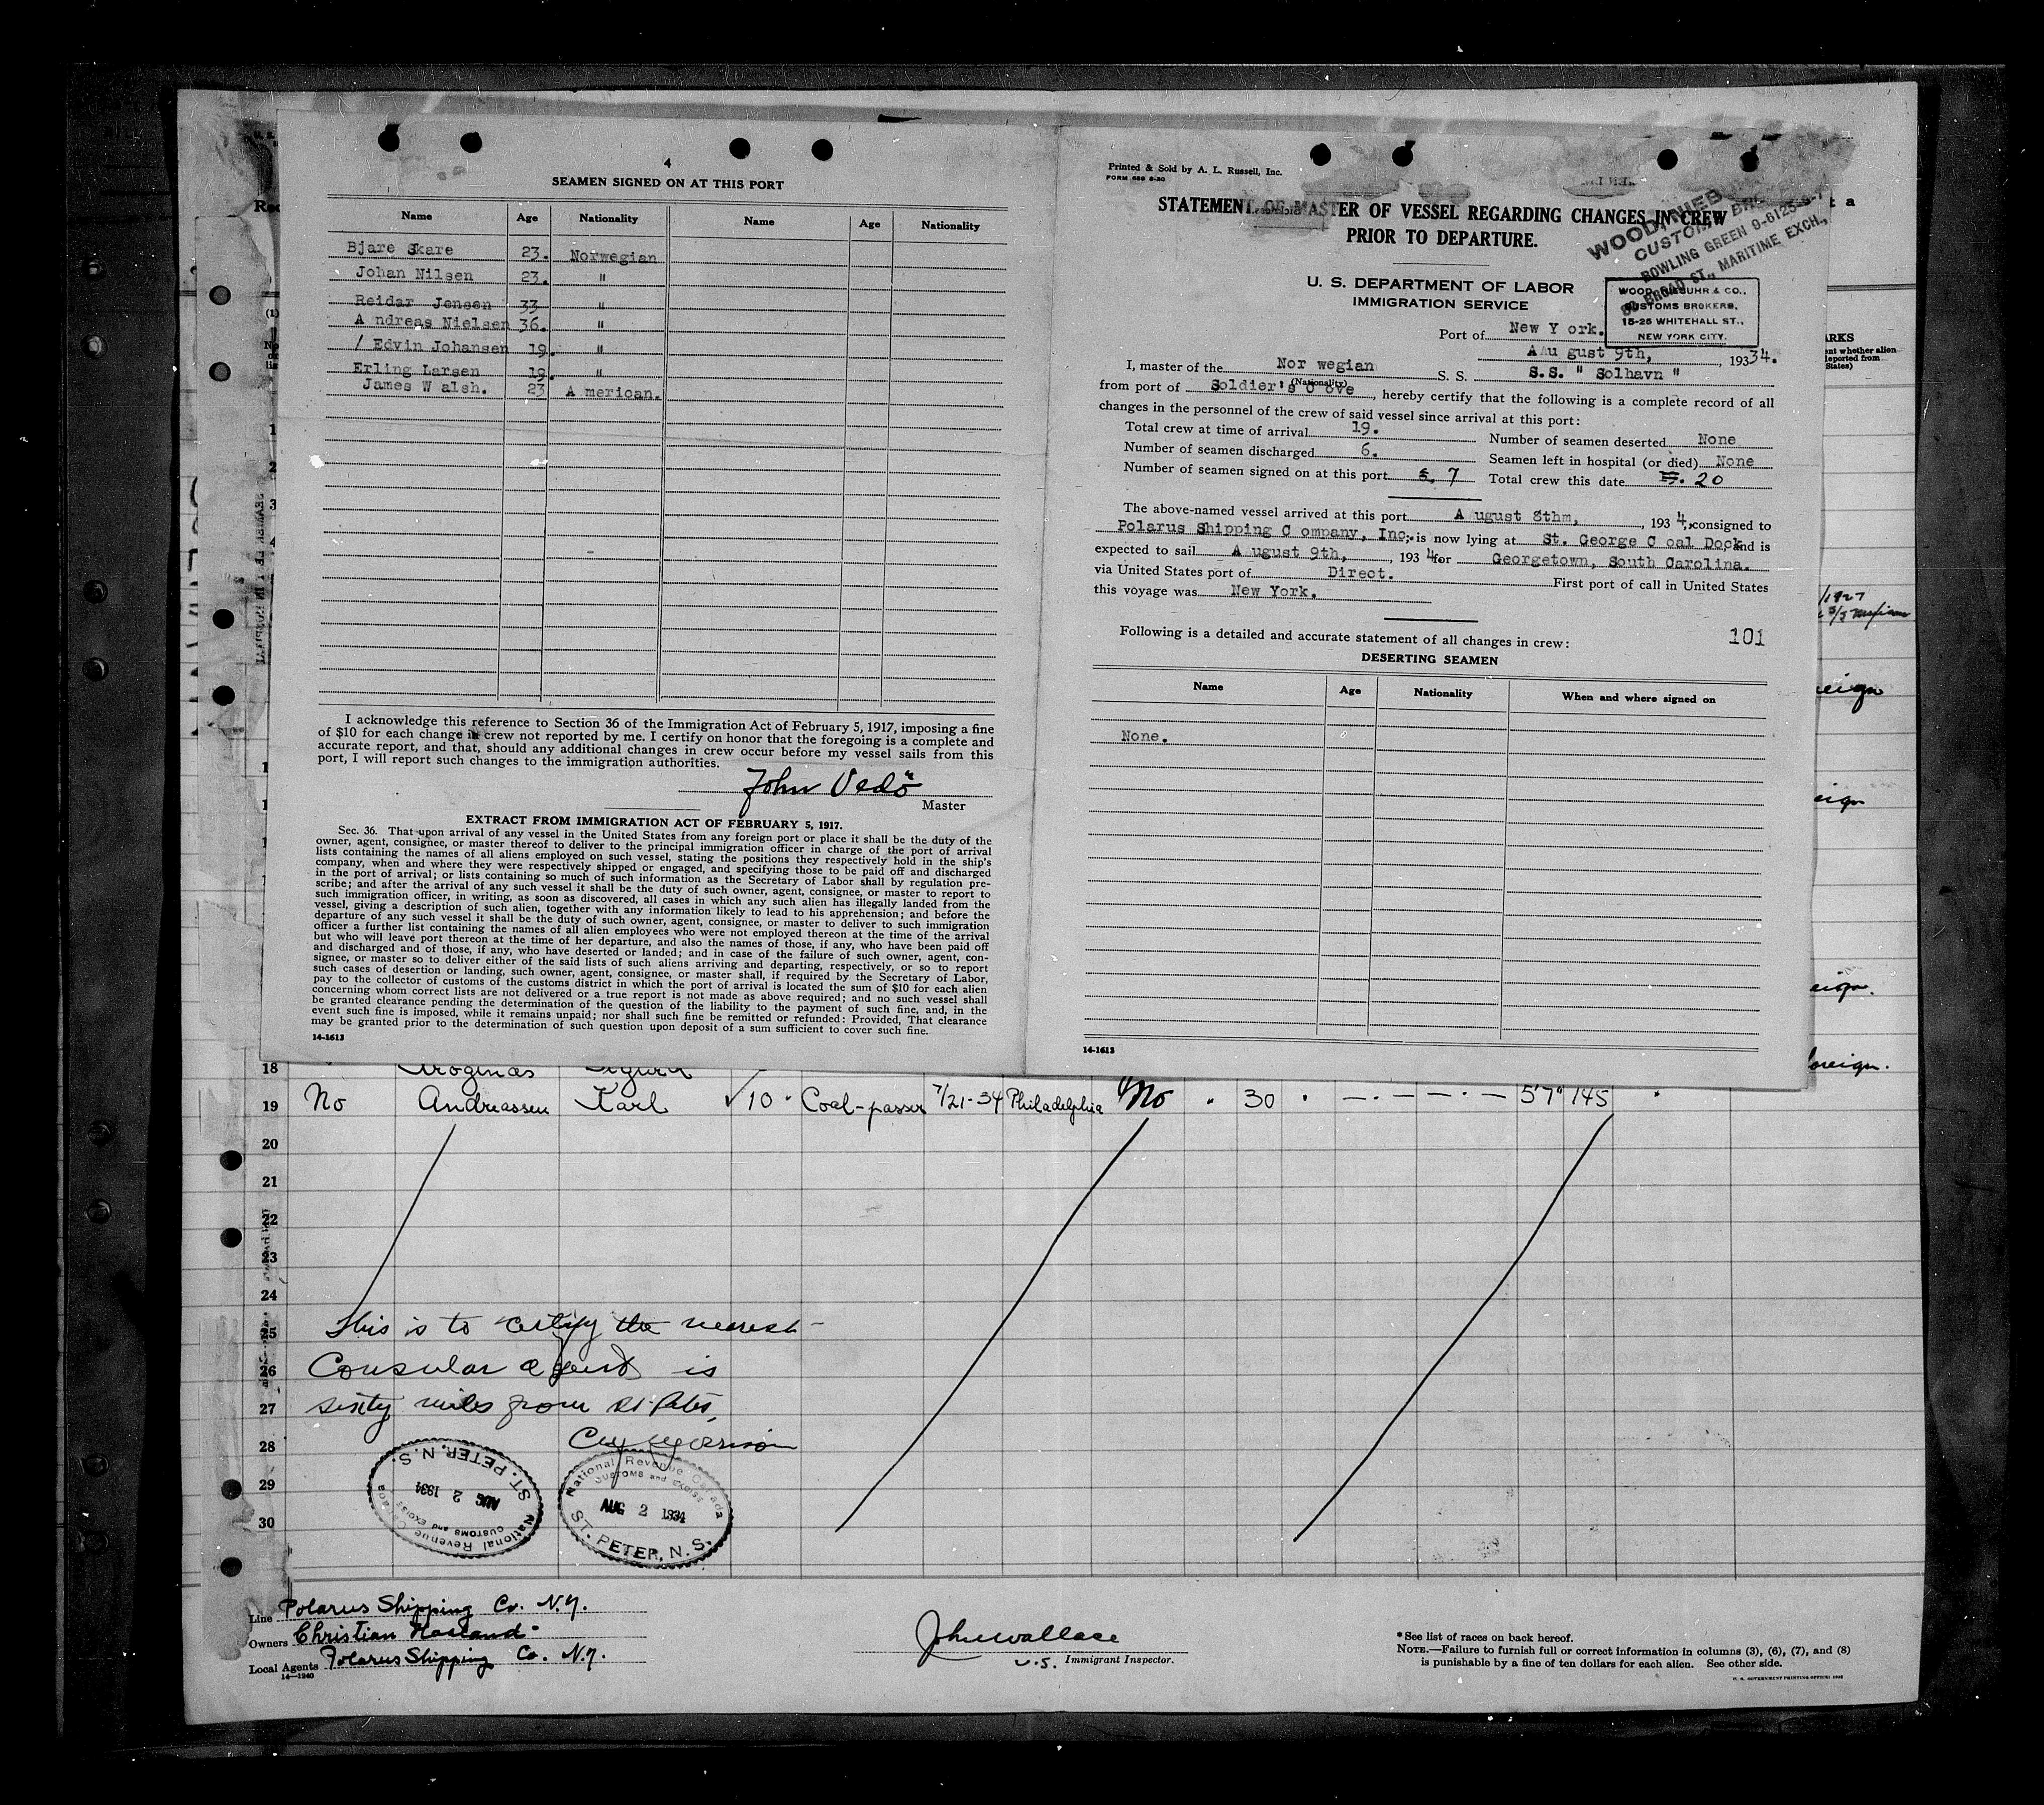 4
SEAMEN SIGNED ON AT THIS PORT
Name Age Nationality Name Age Nationality
Bjare Skare 23. Norwegian
Johan Nilsen 23. "
Reidar Jensen 33 "
A ndreas Nielsen 36. "
/ Edvin Johansen 19. "
Erling Larsen 19. "
James W alsh. 23 A merican.
I acknowledge this reference to Section 36 of the Immigration Act of February 5, 1917, imposing a fine
of $10 for each change in crew not reported by me. I certify on honor that the foregoing is a complete and
accurate report, and that, should any additional changes in crew occur before my vessel sails from this
port, I will report such changes to the immigration authorities.
John Vedö
Master
EXTRACT FROM IMMIGRATION ACT OF FEBRUARY 5, 1917.
Sec. 36. That upon arrival of any vessel in the United States from any foreign port or place it shall be the duty of the
owner, agent, consignee, or master thereof to deliver to the principal immigration officer in charge of the port of arrival
lists containing the names of all aliens employed on such vessel, stating the positions they respectively hold in the ship's
company, when and where they were respectively shipped or engaged, and specifying those to be paid off and discharged
in the port of arrival; or lists containing so much of such information as the Secretary of Labor shall by regulation pre-
scribe; and after the arrival of any such vessel it shall be the duty of such owner, agent, consignee, or master to report to
such immigration officer, in writing, as soon as discovered, all cases in which any such alien has illegally landed from the
vessel, giving a description of such alien, together with any information likely to lead to his apprehension; and before the
departure of any such vessel it shall be the duty of such owner, agent, consignee, or master to deliver to such immigration
officer a further list containing the names of all alien employees who were not employed thereon at the time of the arrival
but who will leave port thereon at the time of her departure, and also the names of those, if any, who have been paid off
and discharged and of those, if any, who have deserted or landed; and in case of the failure of such owner, agent, con-
signee, or master so to deliver either of the said lists of such aliens arriving and departing, respectively, or so to report
such cases of desertion or landing, such owner, agent, consignee, or master shall, if required by the Secretary of Labor,
pay to the collector of customs of the customs district in which the port of arrival is located the sum of $10 for each alien
concerning whom correct lists are not delivered or a true report is not made as above required; and no such vessel shall
be granted clearance pending the determination of the question of the liability to the payment of such fine, and, in the
event such fine is imposed, while it remains unpaid; nor shall such fine be remitted or refunded: Provided, That clearance
may be granted prior to the determination of such question upon deposit of a sum sufficient to cover such fine.
14-1613
Printed & Sold by A. L. Russell, Inc.
FORM 689 8-30
STATEMENT OF MASTER OF VESSEL REGARDING CHANGES IN CREW
PRIOR TO DEPARTURE.
WOOD, NIEB
CUSTOM BRO
BOWLING GREEN 9-6125-6-7
BROAD ST., MARITIME EXCH.,
U. S. DEPARTMENT OF LABOR
IMMIGRATION SERVICE
WOOD, NIEBUHR & CO.,
CUSTOMS BROKERS,
15-25 WHITEHALL ST.,
NEW YORK CITY.
Port of New Y ork.
AAu gust 9th, , 1934.
I, master of the Nor wegian S. S. S.S. " Solhavn "
(Nationality)
from port of Soldier's C ove , hereby certify that the following is a complete record of all
changes in the personnel of the crew of said vessel since arrival at this port:
Total crew at time of arrival 19. Number of seamen deserted None
Number of seamen discharged 6. Seamen left in hospital (or died) None
Number of seamen signed on at this port 7 Total crew this date 20
The above-named vessel arrived at this port A ugust 8thm, , 193 4, consigned to
Polarus Shipping C ompany, Inc. is now lying at St. George C oal Dock and is
expected to sail A ugust 9th, , 193 4 for Georgetown, South Carolina.
via United States port of Direct. First port of call in United States
this voyage was New York.
Following is a detailed and accurate statement of all changes in crew: 101
DESERTING SEAMEN
Name Age Nationality When and where signed on
None.
14-1613
18
19 No Andreassen Karl ✓ 10 Coal-passer 7/21-34 Philadelphia No " 30 " — — — 5'7" 145
20
21
22
23
24
25 This is to certify the nearest
26 Consular agent is
27 sixty miles from St. Peters,
28
29
30
National Revenue Canada
CUSTOMS and EXCISE
AUG 2 1934
ST. PETER, N. S.
National Revenue Canada
CUSTOMS and EXCISE
AUG 2 1934
ST. PETER, N. S.
Line Polarus Shipping Co. N.Y.
Owners Christian Hasland
Local Agents Polarus Shipping Co. N.Y.
14—1240
John Wallace
U.S. Immigrant Inspector.
*See list of races on back hereof.
NOTE.—Failure to furnish full or correct information in columns (3), (6), (7), and (8)
is punishable by a fine of ten dollars for each alien. See other side.